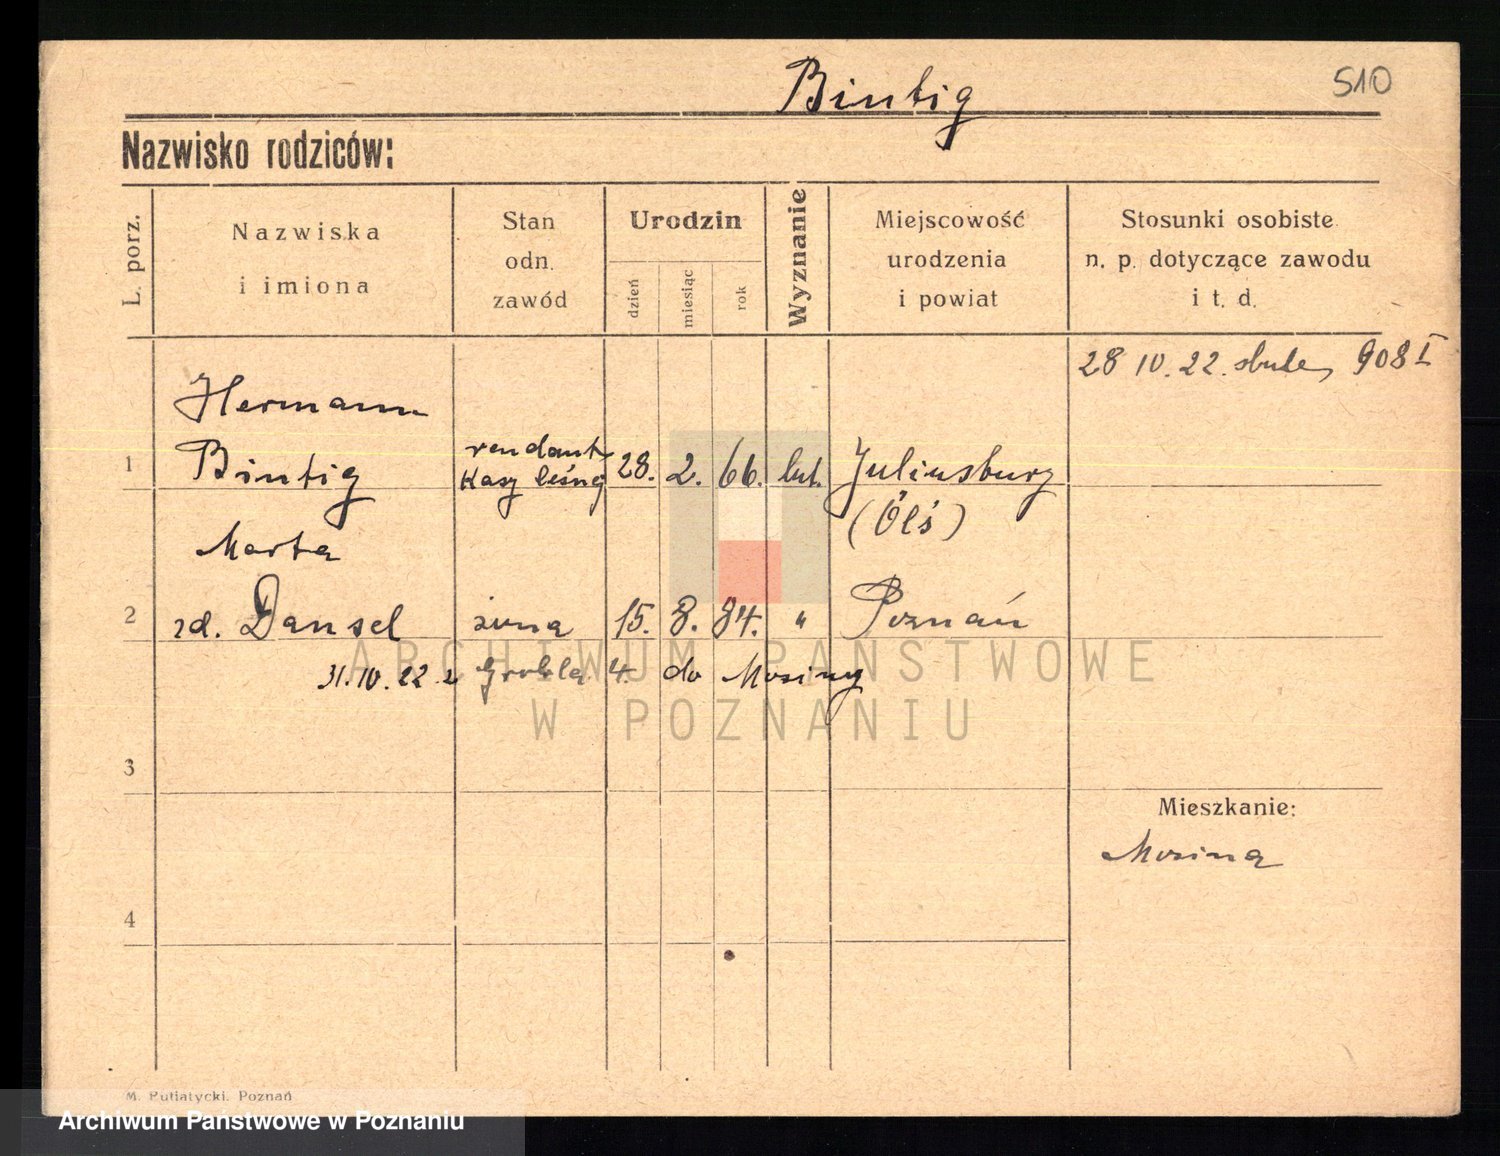 Bintig
510
Nazwisko rodziców:
L. porz.
Nazwiska
i imiona
Stan
odn.
zawód
Urodzin
dzień
miesiąc
rok
Wyznanie
Miejscowość
urodzenia
i powiat
Stosunki osobiste
n. p. dotyczące zawodu
i t. d.
28 10. 22. 908 I
Hermann
1 Bintig rendant 28. 2. 66. lut. Juliusburg
Kasy leśnej
(Ölś)
Marta
2 zd. Dansel żona 15. 8. 84. " Poznań
31.10.22 z Grobla 4. do Mosiny
ARCHIWUM PAŃSTWOWE
W POZNANIU
3
Mieszkanie:
Mosina
4
M. Putiatycki. Poznań
Archiwum Państwowe w Poznaniu